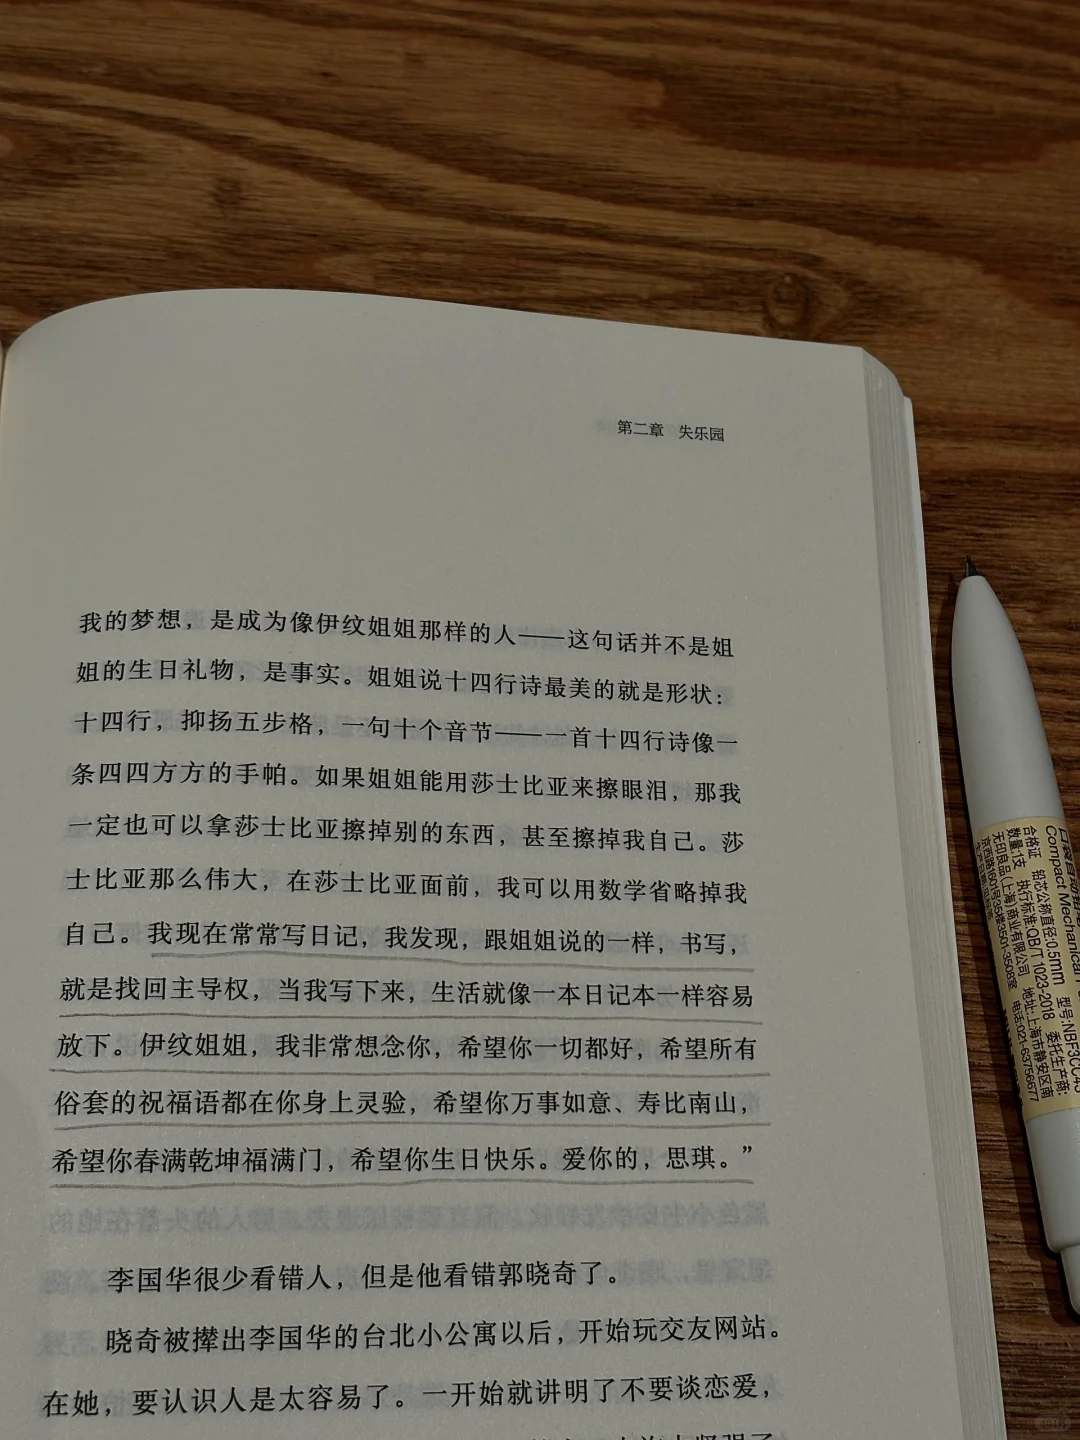 第二章 失乐园
我的梦想，是成为像伊纹姐姐那样的人——这句话并不是姐
姐的生日礼物，是事实。姐姐说十四行诗最美的就是形状：
十四行，抑扬五步格，一句十个音节——一首十四行诗像一
条四四方方的手帕。如果姐姐能用莎士比亚来擦眼泪，那我
一定也可以拿莎士比亚擦掉别的东西，甚至擦掉我自己。莎
士比亚那么伟大，在莎士比亚面前，我可以用数学省略掉我
自己。我现在常常写日记，我发现，跟姐姐说的一样，书写，
就是找回主导权，当我写下来，生活就像一本日记本一样容易
放下。伊纹姐姐，我非常想念你，希望你一切都好，希望所有
俗套的祝福语都在你身上灵验，希望你万事如意、寿比南山，
希望你春满乾坤福满门，希望你生日快乐。爱你的，思琪。”
李国华很少看错人，但是他看错郭晓奇了。
晓奇被撵出李国华的台北小公寓以后，开始玩交友网站。
在她，要认识人是太容易了。一开始就讲明了不要谈恋爱，
Compact Mechanical
合格证 铅芯公称直径:0.5mm 型号:NBF3CC45
数量:1支 执行标准:QB/T 1023-2018 委托生产商:
无印良品(上海)商业有限公司 地址:上海市静安区南
京西路1601号35楼3501-3508室 电话:021-63756677